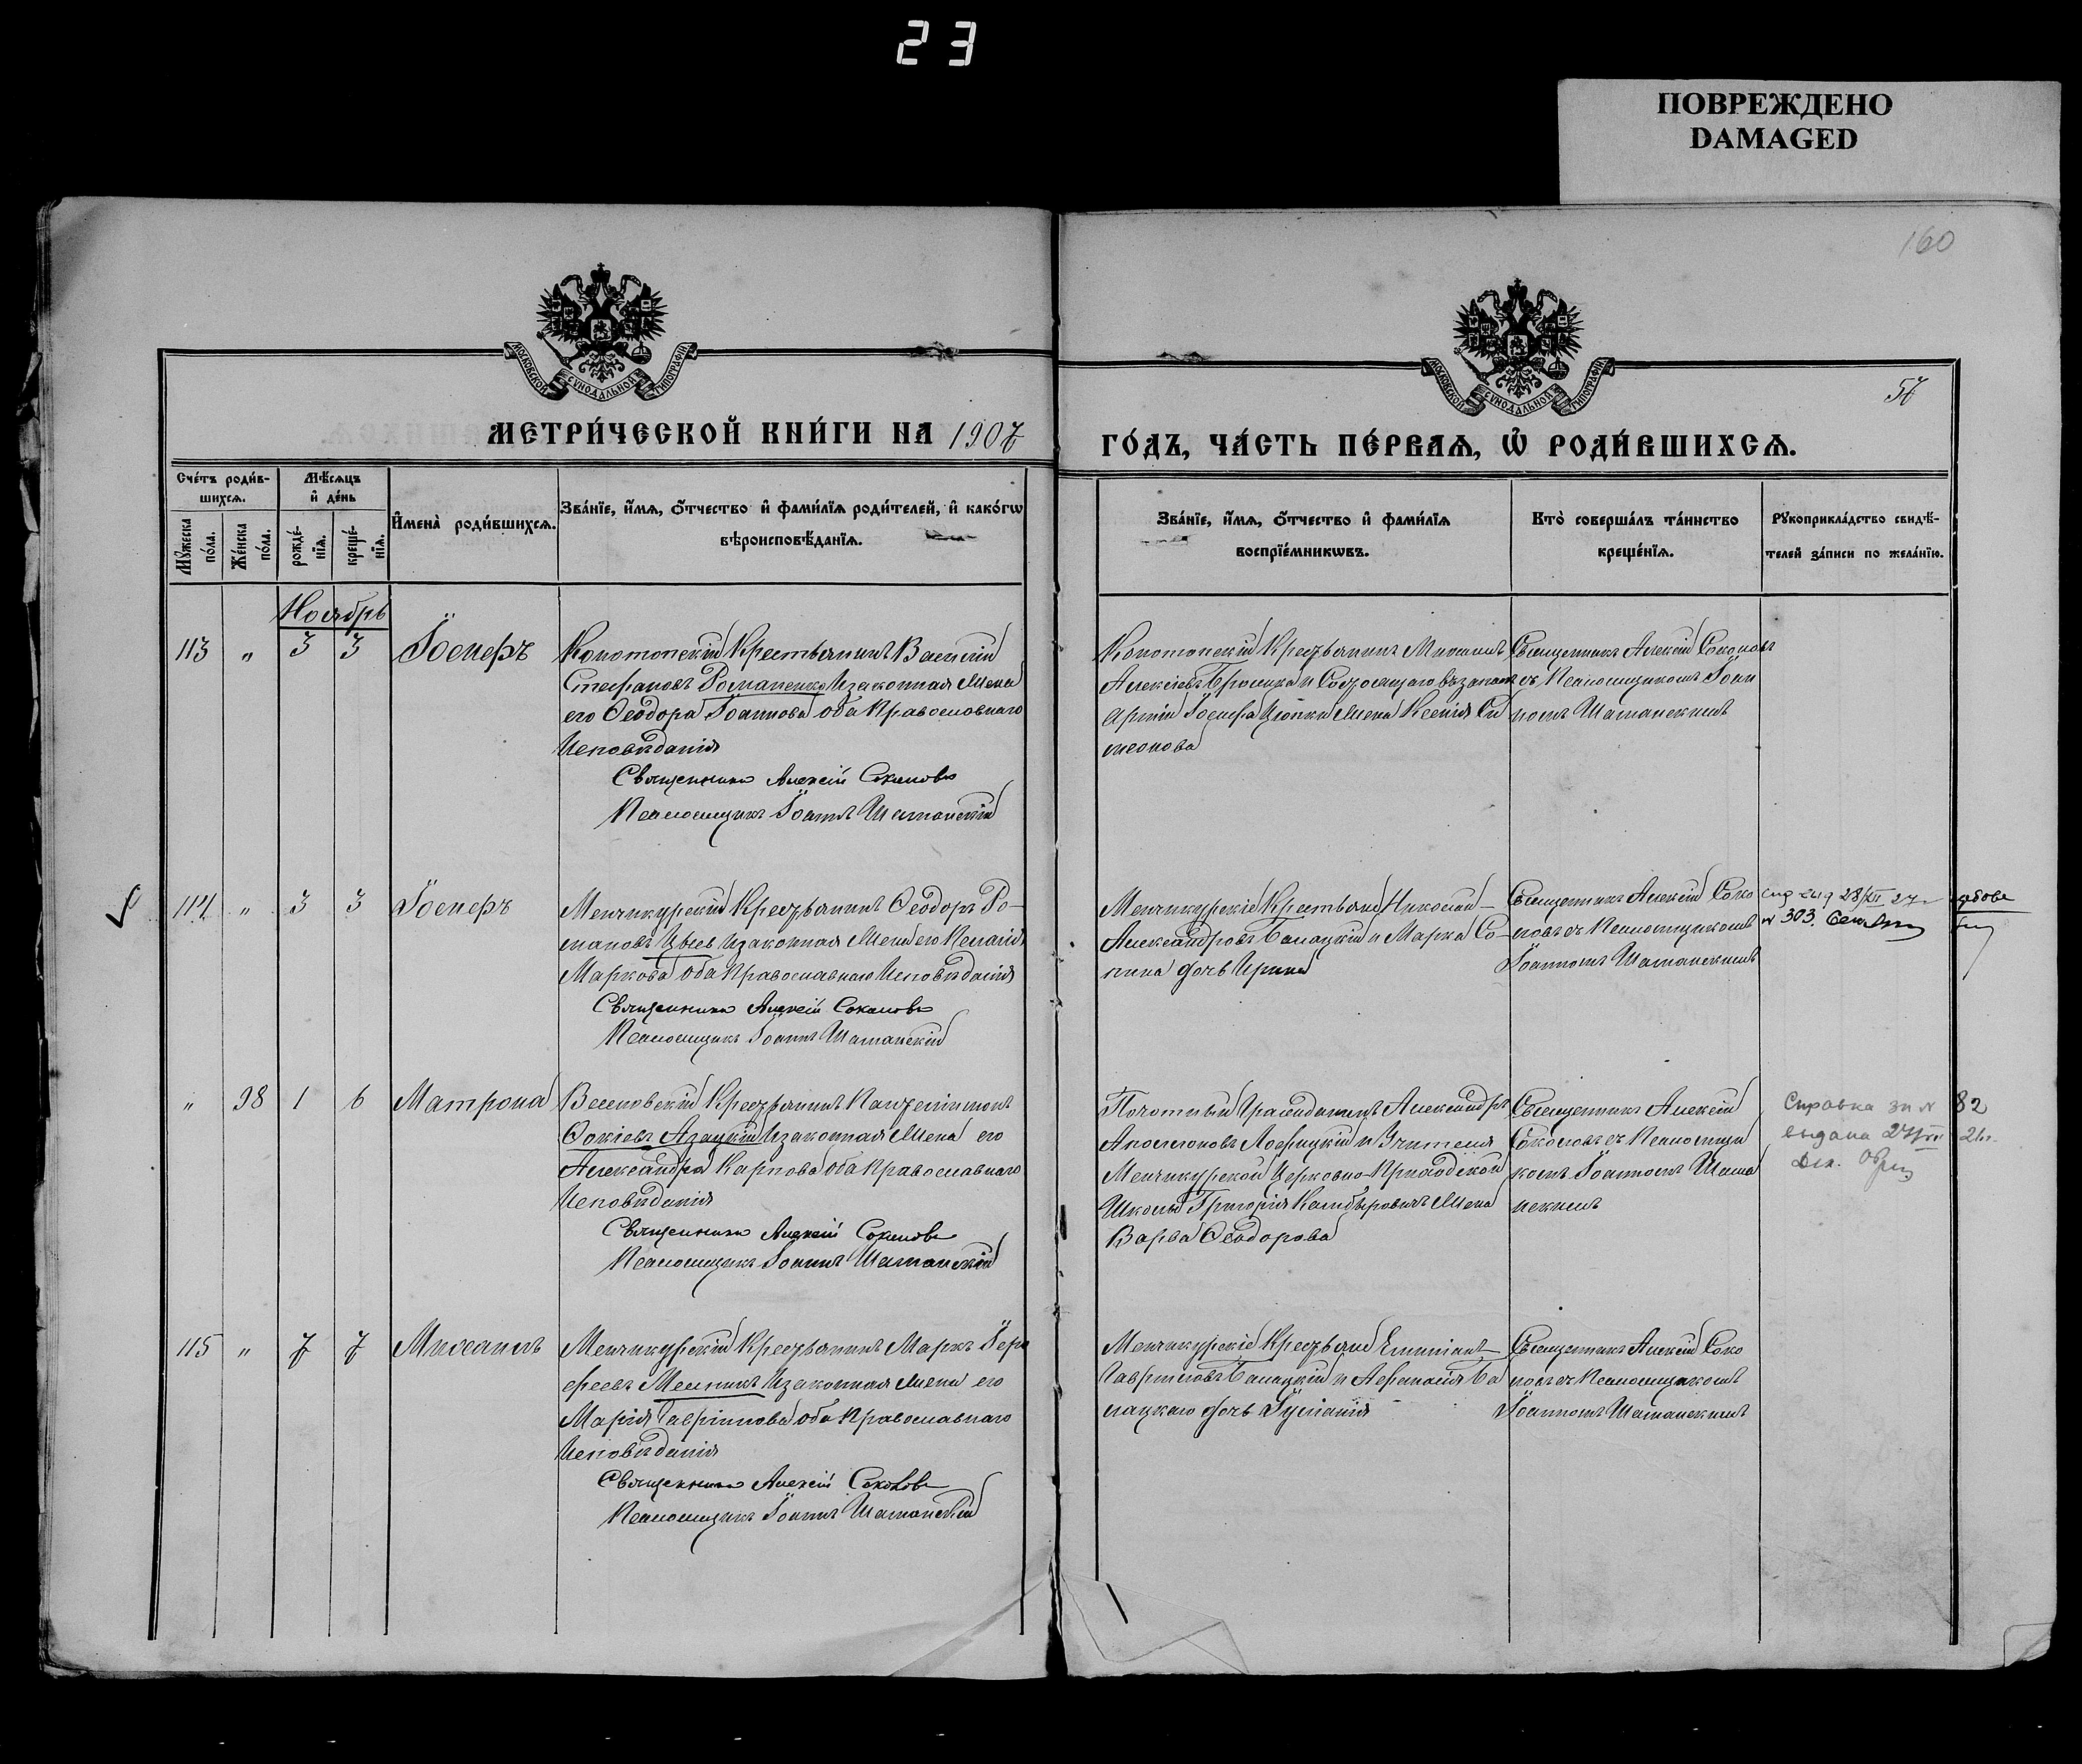 23
ПОВРЕЖДЕНО
DAMAGED
160
МОСКОВСКОЙ СѴНОДАЛЬНОЙ ТИПОГРАФІИ
МОСКОВСКОЙ СѴНОДАЛЬНОЙ ТИПОГРАФІИ
57
МЕТРИ́ЧЕСКОЙ КНИ́ГИ НА 1907
ГО́ДЪ, ЧА́СТЬ ПЕ́РВАѦ, Ѿ РОДИ́ВШИХСѦ.
Сче́тъ роди́в-
шихсѧ.
Мꙋжеска по́ла.
Же́нска по́ла.
Мѣ́сѧцъ
и҆ де́нь
рожде́-нїѧ.
креще́-нїѧ.
И҆мена̀ роди́вшихсѧ.
Зва́нїе, и҆́мѧ, ѻ҆́тчество и҆ фами́лїѧ роди́телей, и҆ како́гѡ
вѣроисповѣ́данїѧ.
Зва́нїе, и҆́мѧ, ѻ҆́тчество и҆ фами́лїѧ
воспрїе́мникѡвъ.
Кто̀ соверша́лъ та́инство
креще́нїѧ.
Рꙋкоприкла́дство свидѣ́-
телей за́писи по жела́нїю.
Ноябрь
113 " 3 3 Іосифъ
Конотопскій Крестьянинъ Василій
Стефановъ Романенко и законная жена
его Ѳеодора Іоаннова оба Православнаго
Исповѣданія
Священникъ Алексій Соколовъ
Псаломщикъ Іоаннъ Шаманскій
Конотопскій Крестьянинъ Михаилъ
Алексіевъ и Состоящаго въ запасѣ
Арміи Іосифа жена Ксенія Си
меонова
Священникъ Алексій Соколовъ
съ Псаломщикомъ Іоан
номъ Шаманскимъ
114 " 3 3 Іосифъ
Менчикурскій Крестьянинъ Ѳеодоръ Ро-
мановъ и законная жена его Пелагія
Маркова оба Православнаго Исповѣданія
Священникъ Алексій Соколовъ
Псаломщикъ Іоаннъ Шаманскій
Менчикурскіе Крестьяне Николай
Александровъ Балацкій и Марка Со-
пина дочь Ирина
Священникъ Алексій Соко
ловъ съ Псаломщикомъ
Іоанномъ Шаманскимъ
28/XII 27
№ 303.
" 98 1 6 Матрона
Веселовскій Крестьянинъ Пантелимонъ
Фокіевъ Азацкій и законная жена его
Александра Карпова оба Православнаго
Исповѣданія
Священникъ Алексій Соколовъ
Псаломщикъ Іоаннъ Шаманскій
Почетный Гражданинъ Александръ
и Учителя
Менчикурской Церковно-Приходской
Школы Григорія жена
Варва Ѳеодорова
Священникъ Алексій
Соколовъ съ Псаломщи
комъ Іоанномъ Шама
нскимъ
Справка за № 82
выдана
115 " 7 7 Михаилъ
Менчикурскій Крестьянинъ Маркъ
Мельникъ и законная жена его
Марія Гавріилова оба Православнаго
Исповѣданія
Священникъ Алексій Соколовъ
Псаломщикъ Іоаннъ Шаманскій
Менчикурскіе Крестьяне Емиліанъ
Гавріиловъ Балацкій и Аѳанасія Ба
лацкаго дочь Іуліанія
Священникъ Алексій Соко
ловъ съ Псаломщикомъ
Іоанномъ Шаманскимъ